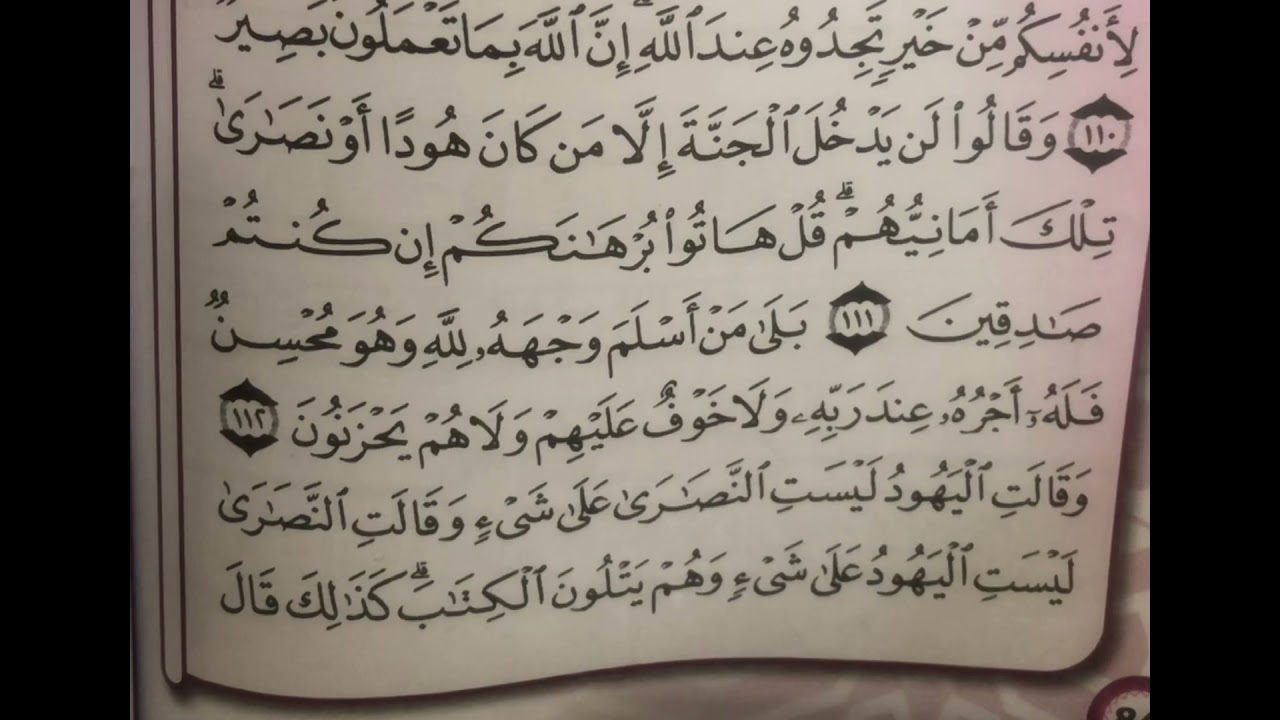 لِأَنفُسِكُم مِّنْ خَيْرٍ تَجِدُوهُ عِندَ ٱللَّهِ ۗ إِنَّ ٱللَّهَ بِمَا تَعْمَلُونَ بَصِيرٌ
١١٠ وَقَالُوا۟ لَن يَدْخُلَ ٱلْجَنَّةَ إِلَّا مَن كَانَ هُودًا أَوْ نَصَـٰرَىٰ ۗ
تِلْكَ أَمَانِيُّهُمْ ۗ قُلْ هَاتُوا۟ بُرْهَـٰنَكُمْ إِن كُنتُمْ
صَـٰدِقِينَ ١١١ بَلَىٰ مَنْ أَسْلَمَ وَجْهَهُۥ لِلَّهِ وَهُوَ مُحْسِنٌ
فَلَهُۥٓ أَجْرُهُۥ عِندَ رَبِّهِۦ وَلَا خَوْفٌ عَلَيْهِمْ وَلَا هُمْ يَحْزَنُونَ ١١٢
وَقَالَتِ ٱلْيَهُودُ لَيْسَتِ ٱلنَّصَـٰرَىٰ عَلَىٰ شَىْءٍ وَقَالَتِ ٱلنَّصَـٰرَىٰ
لَيْسَتِ ٱلْيَهُودُ عَلَىٰ شَىْءٍ وَهُمْ يَتْلُونَ ٱلْكِتَـٰبَ ۗ كَذَٰلِكَ قَالَ